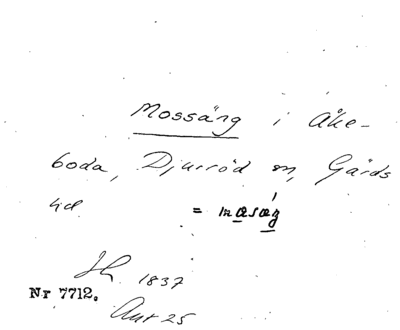 Mossäng i Åke-
boda, Djurröd sn, Gärds
hd. = mɑsæ̀g
Sk. 1837
Nr 7712.
Ant 25